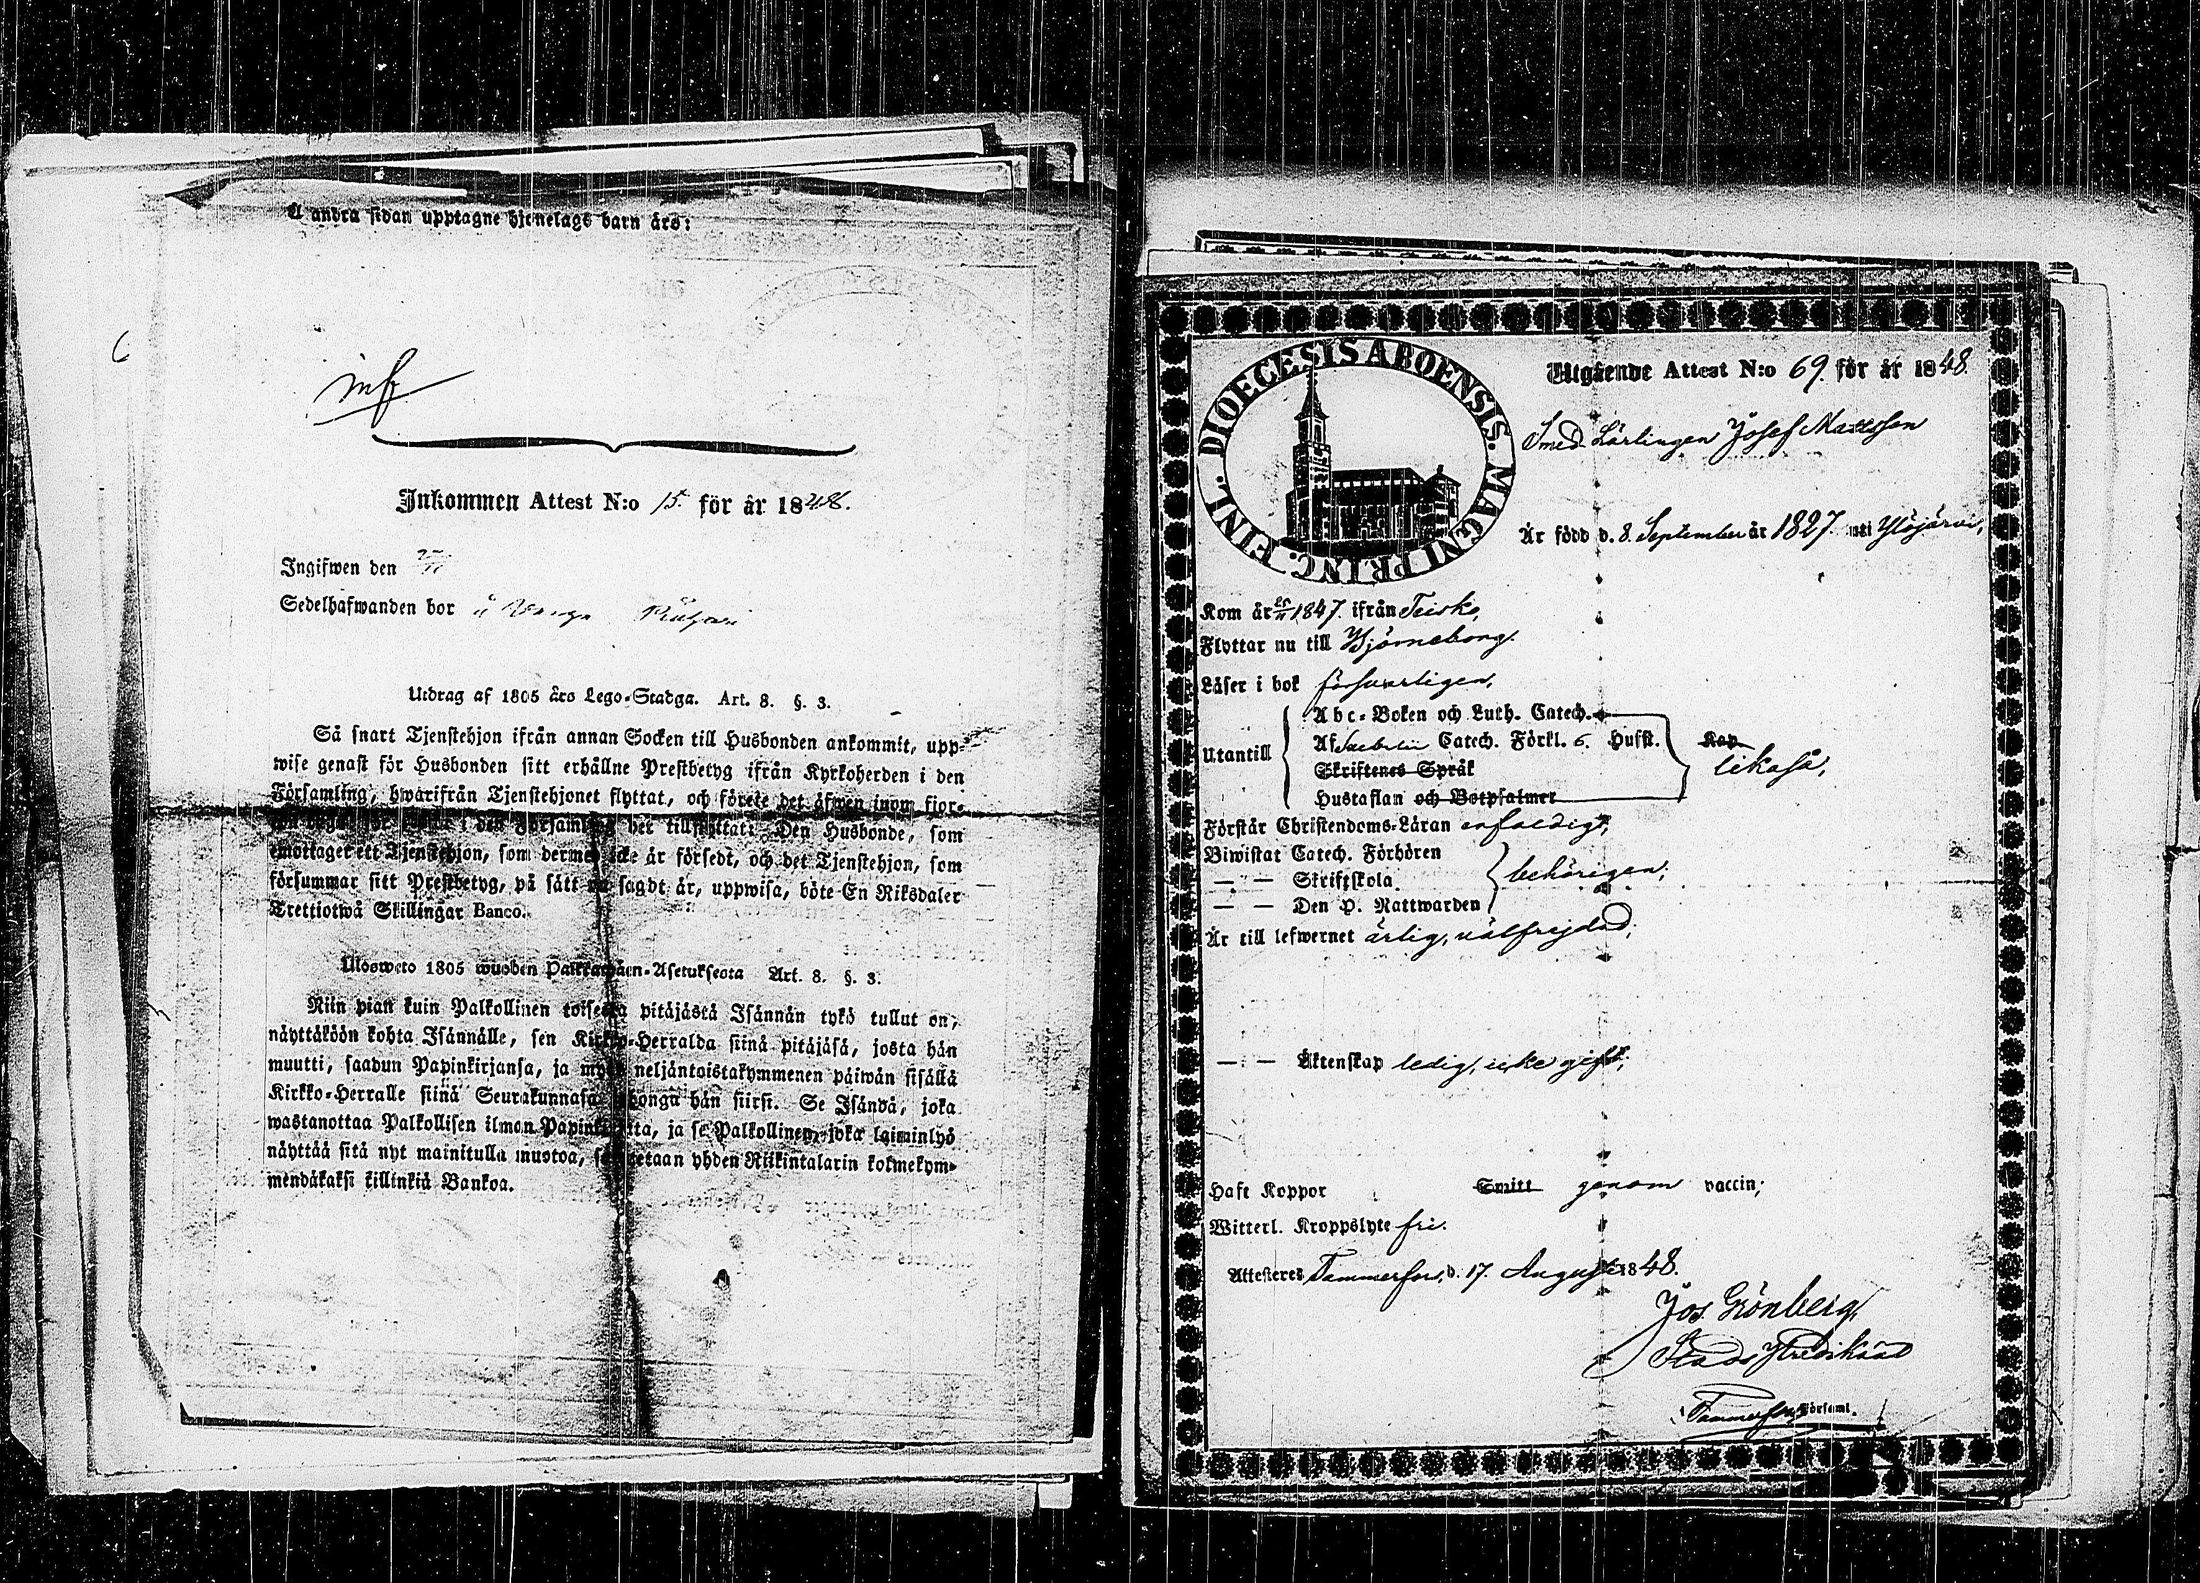 A andra sidan upptagne hjonelags barn äro:
Inkommen Attest N:o 15. för år 1848.
Ingifwen den
Sedelhafwanden bor å
Utdrag af 1805 års Lego-Stadga. Art. 8. §. 3.
Så snart Tjenstehjon ifrån annan Socken till Husbonden ankommit, upp-
wise genast för Husbonden sitt erhållne Prestbetyg ifrån Kyrkoherden i den
Församling, hwarifrån Tjenstehjonet flyttat, och förete det äfwen inom fjor-
i den Församling det tillflyttat. Den Husbonde, som
emottager ett Tjenstehjon, som dermed icke är försedt, och det Tjenstehjon, som
försummar sitt Prestbetyg, på sätt nu sagdt är, uppwisa, böte En Riksdaler
Trettiotwå Skillingar Banco.
Ulosweto 1805 wuoden Palkkawäen-Asetuksesta Art. 8. §. 3.
Niin pian kuin Palkollinen toisesta pitäjästä Isännän tykö tullut on,
näyttäköön kohta Isännälle, sen Kirkko-Herralda siinä pitäjäsä, josta hän
muutti, saadun Papinkirjansa, ja myös neljäntoistakymmenen päiwän sisällä
Kirkko-Herralle siinä Seurakunnasa, kuhonga hän siirsi. Se Isändä, joka
wastanottaa Palkollisen ilman Papinkirjaita, ja se Palkollinen, joka laiminlyö
näyttää sitä nyt mainitulla muotoa, sakotetaan yhden Riikintalarin kolmekym-
mendäkaksi killinkiä Bankoa.
DIOECESIS ABOENSIS. MAGNI PRINC. FINL.
Utgående Attest N:o 69. för år 1848.
Smed Lärlingen Josef Mattsson
Är född d. 8. September år 1827. uti Ylöjärvi,
Kom år 1847. ifrån Teisko,
Flyttar nu till Björneborg.
Läser i bok försvarligen,
Abc-Boken och Luth. Catech.
Utantill Af Svebelii Catech. Förkl. 6. Hufst. likaså,
Skriftenes Språk
Hustaflan och Botpsalmer
Förstår Christendoms-Läran enfaldigt,
Biwistat Catech. Förhören
— " — Skriftskola behörigen,
— — Den H. Nattwarden
Är till lefwernet ärlig, välfrejdad,
— " — Äktenskap ledig, icke gift,
Haft Koppor Smitt genom vaccin;
Witterl. Kroppslyte fri.
Attesteres Tammerfors, d. 17. Augusti 1848.
Jos. Grönberg
Stads Predikant
Tammerfors Församl.